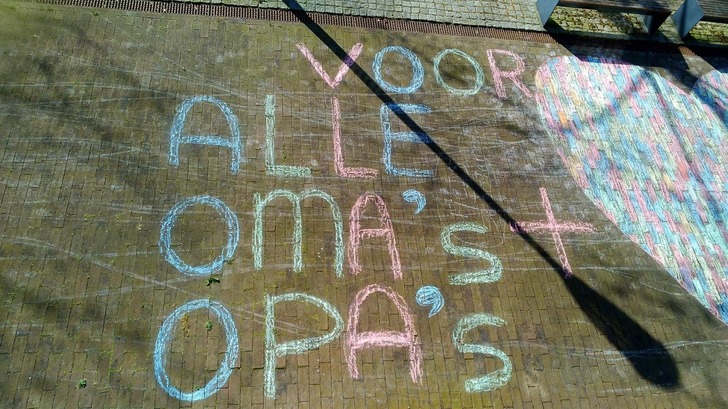 VOOR
ALLE
OMA's +
OPA's